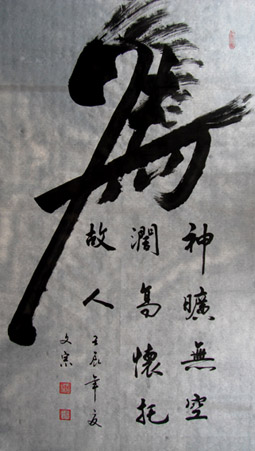 馬
神曠無空
濶 懷托
故人
壬辰年夏
文宗